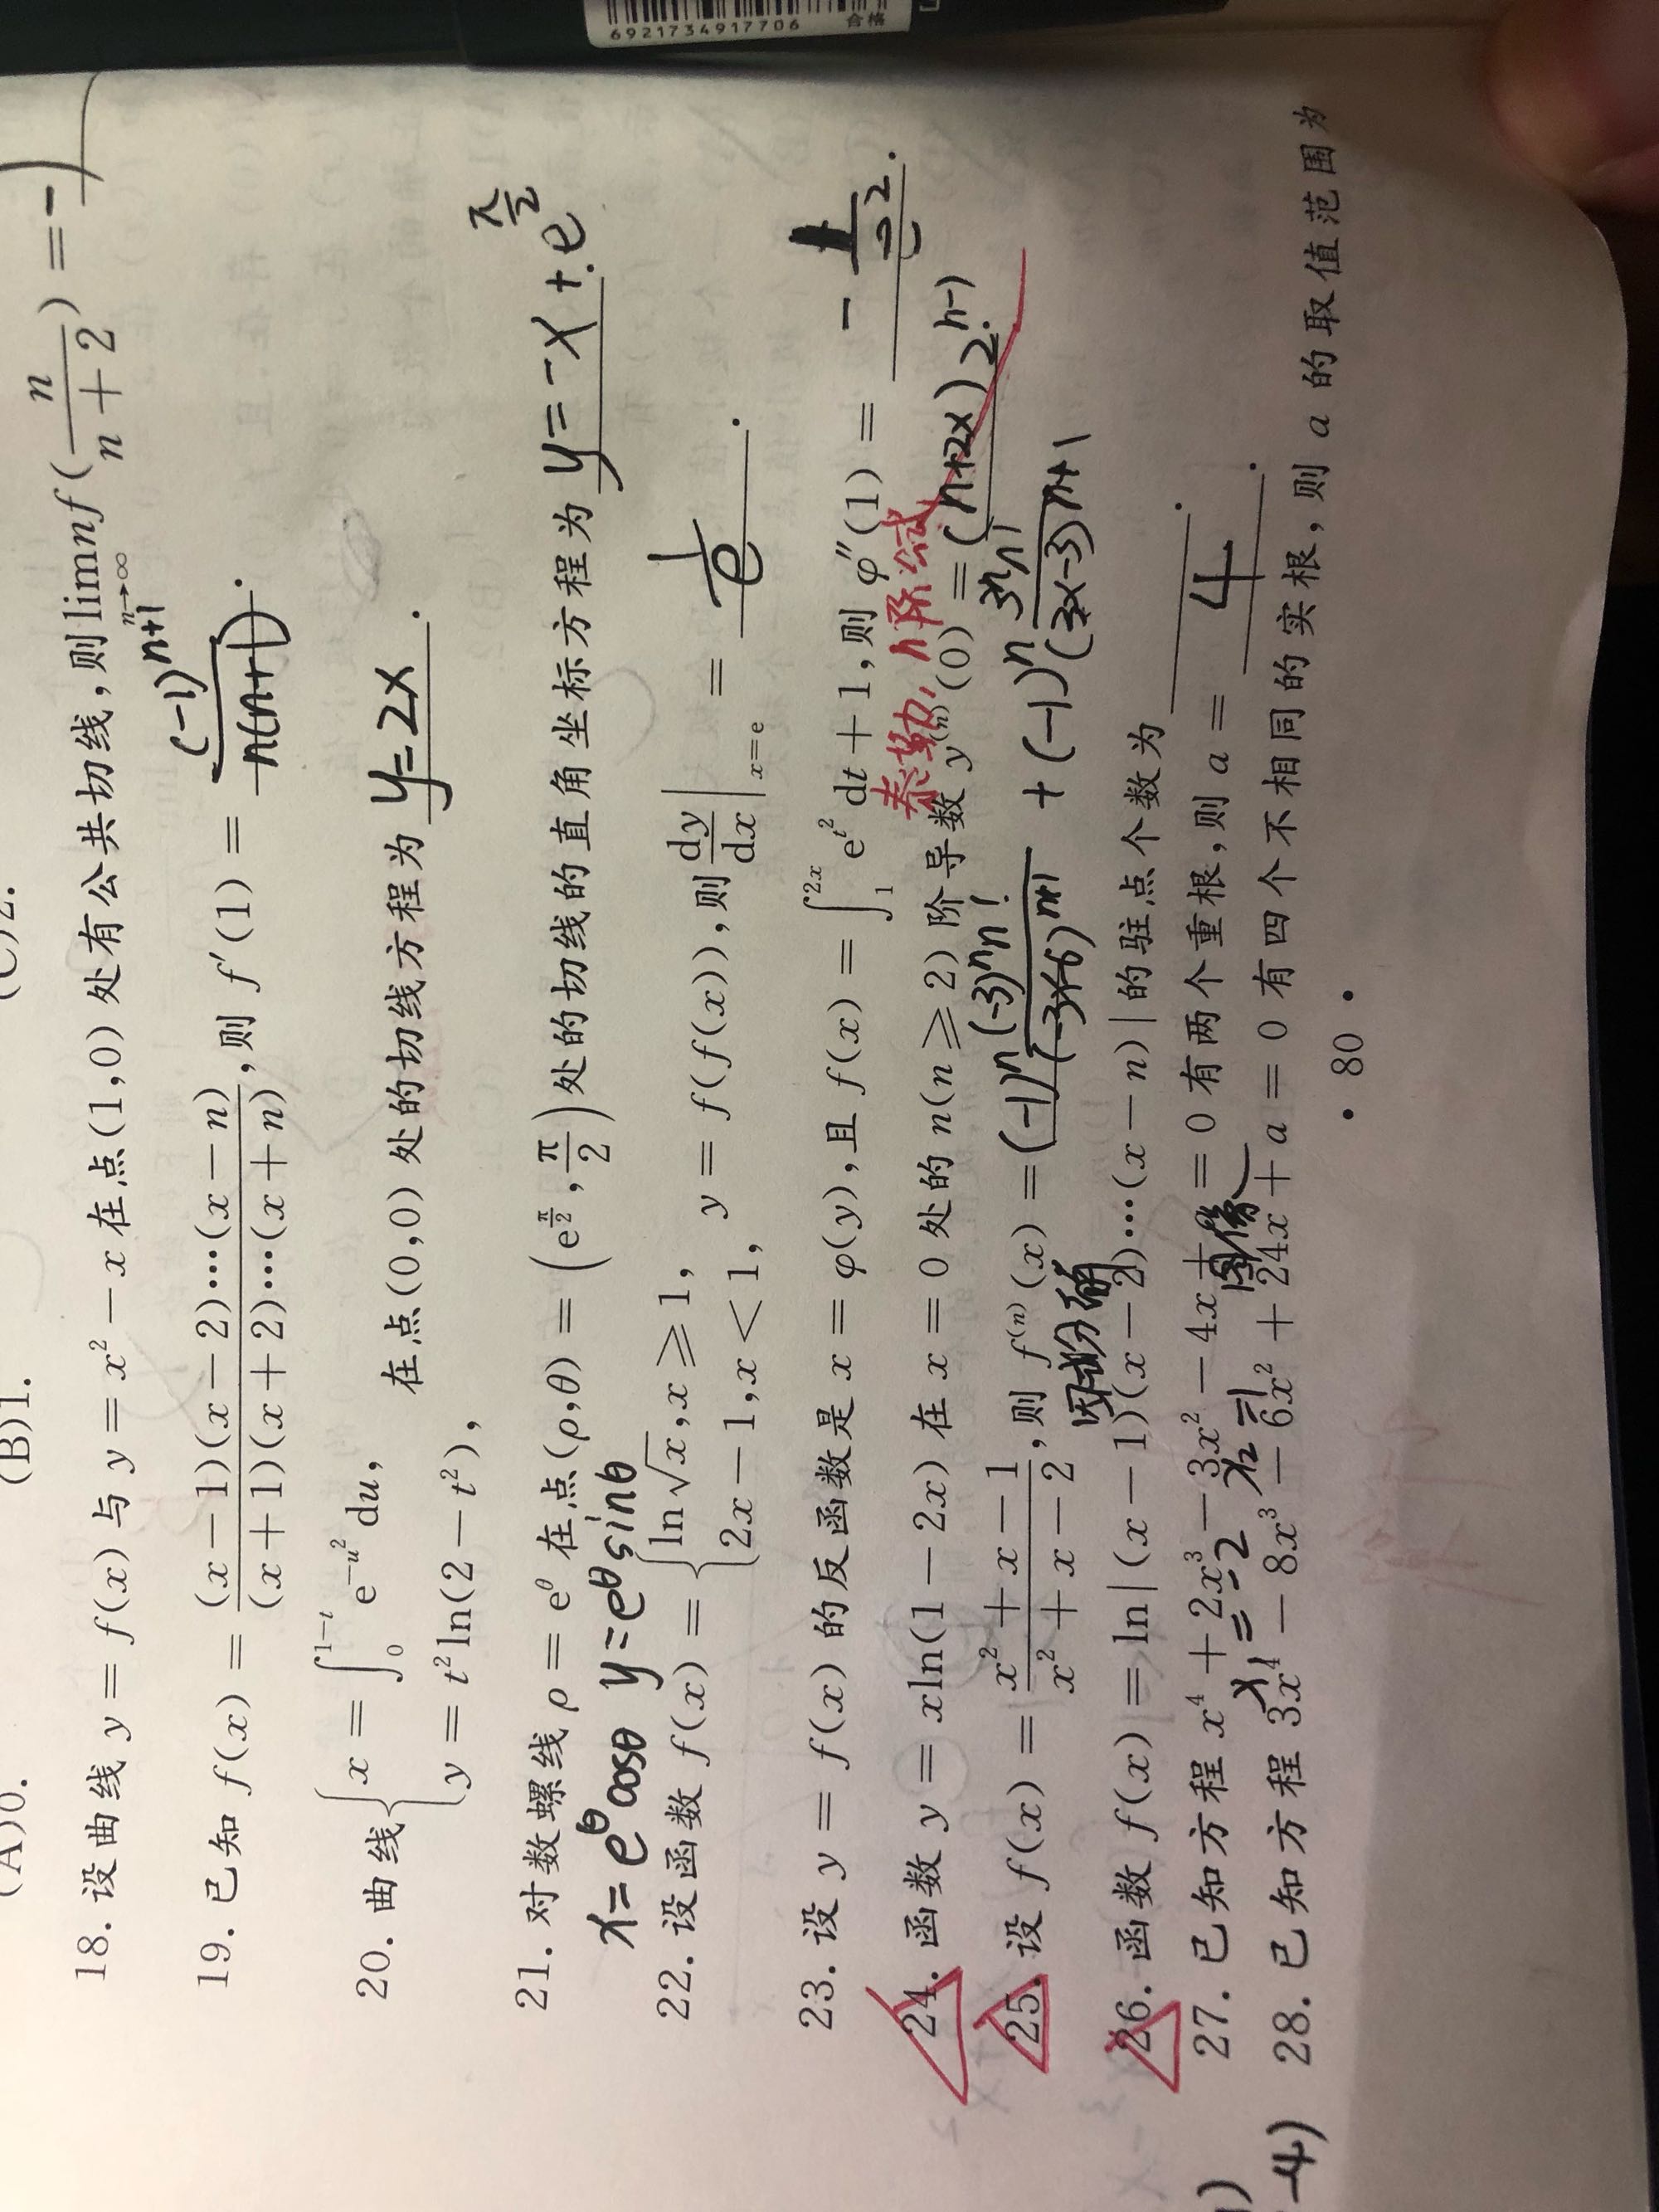 6921734917706 合格
(A)0. (B)1. (C)2.
18. 设曲线 y = f(x) 与 y = x² − x 在点(1,0) 处有公共切线,则 lim_{n→∞} nf(n/(n+2)) =
19. 已知 f(x) = (x−1)(x−2)⋯(x−n)/((x+1)(x+2)⋯(x+n)),则 f′(1) = (-1)^{n+1}/n(n+1).
20. 曲线 { x = ∫_0^{1−t} e^{−u²} du,
y = t² ln(2 − t²), 在点(0,0) 处的切线方程为 y=2x.
21. 对数螺线 ρ = e^θ 在点(ρ,θ) = (e^{π/2}, π/2) 处的切线的直角坐标方程为 y=-x+e^{π/2}.
x=e^θcosθ y=e^θsinθ
22. 设函数 f(x) = { ln√x, x ⩾ 1,
2x − 1, x < 1, y = f(f(x)),则 dy/dx|_{x=e} = 1/e.
23. 设 y = f(x) 的反函数是 x = φ(y),且 f(x) = ∫_1^{2x} e^{t²} dt + 1,则 φ″(1) =
泰勒, n阶公式
24. 函数 y = xln(1 − 2x) 在 x = 0 处的 n(n ⩾ 2) 阶导数 y^{(n)}(0) = (n+2x)2^{n-1}.
25. 设 f(x) = (x² + x − 1)/(x² + x − 2),则 f^{(n)}(x) = (-1)^n (-3)^n n!/(-3x-6)^{n+1} + (-1)^n 3^n n!/(3x-3)^{n+1}
26. 函数 f(x) = ln|(x − 1)(x − 2)⋯(x − n)| 的驻点个数为 .
27. 已知方程 x⁴ + 2x³ − 3x² − 4x + = 0 有两个重根,则 a = 4.
x₁=-2 x₂=1 图像
28. 已知方程 3x⁴ − 8x³ − 6x² + 24x + a = 0 有四个不相同的实根,则 a 的取值范围为
-4)
• 80 •